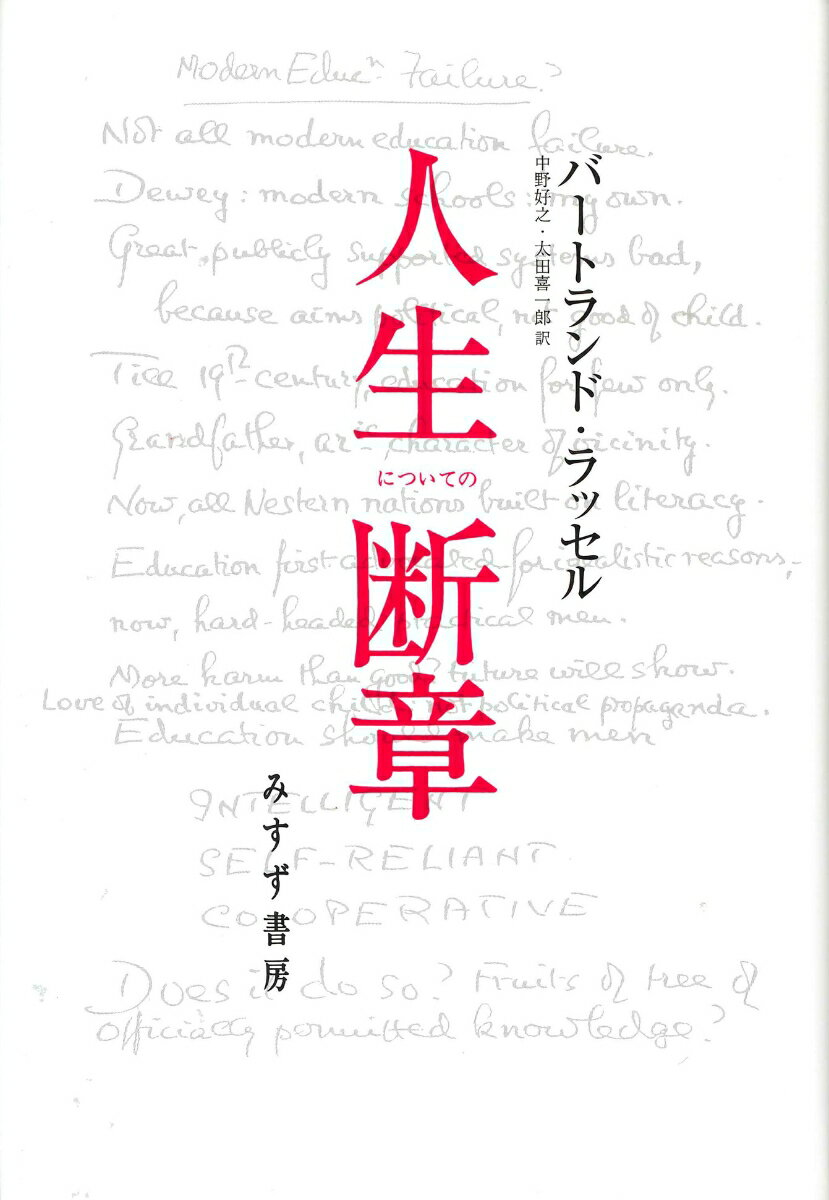 バートランド・ラッセル
中野好之・太田喜一郎 訳
人生
についての
断章
みすず書房
Modern Educn Failure?
Not all modern education failure.
Dewey: modern schools: my own.
Great publicly supported systems bad,
because aims political, not good of child.
Till 19th century, education for few only.
Grandfather, character of vicinity.
Now, all Western nations built on literacy.
Education first advocated for idealistic reasons,
now, hard-headed practical men.
More harm than good? Future will show.
Love of individual child: not political propaganda.
Education should make men
INTELLIGENT
SELF-RELIANT
CO-OPERATIVE
Does it do so? Fruits of tree of
officially permitted knowledge?